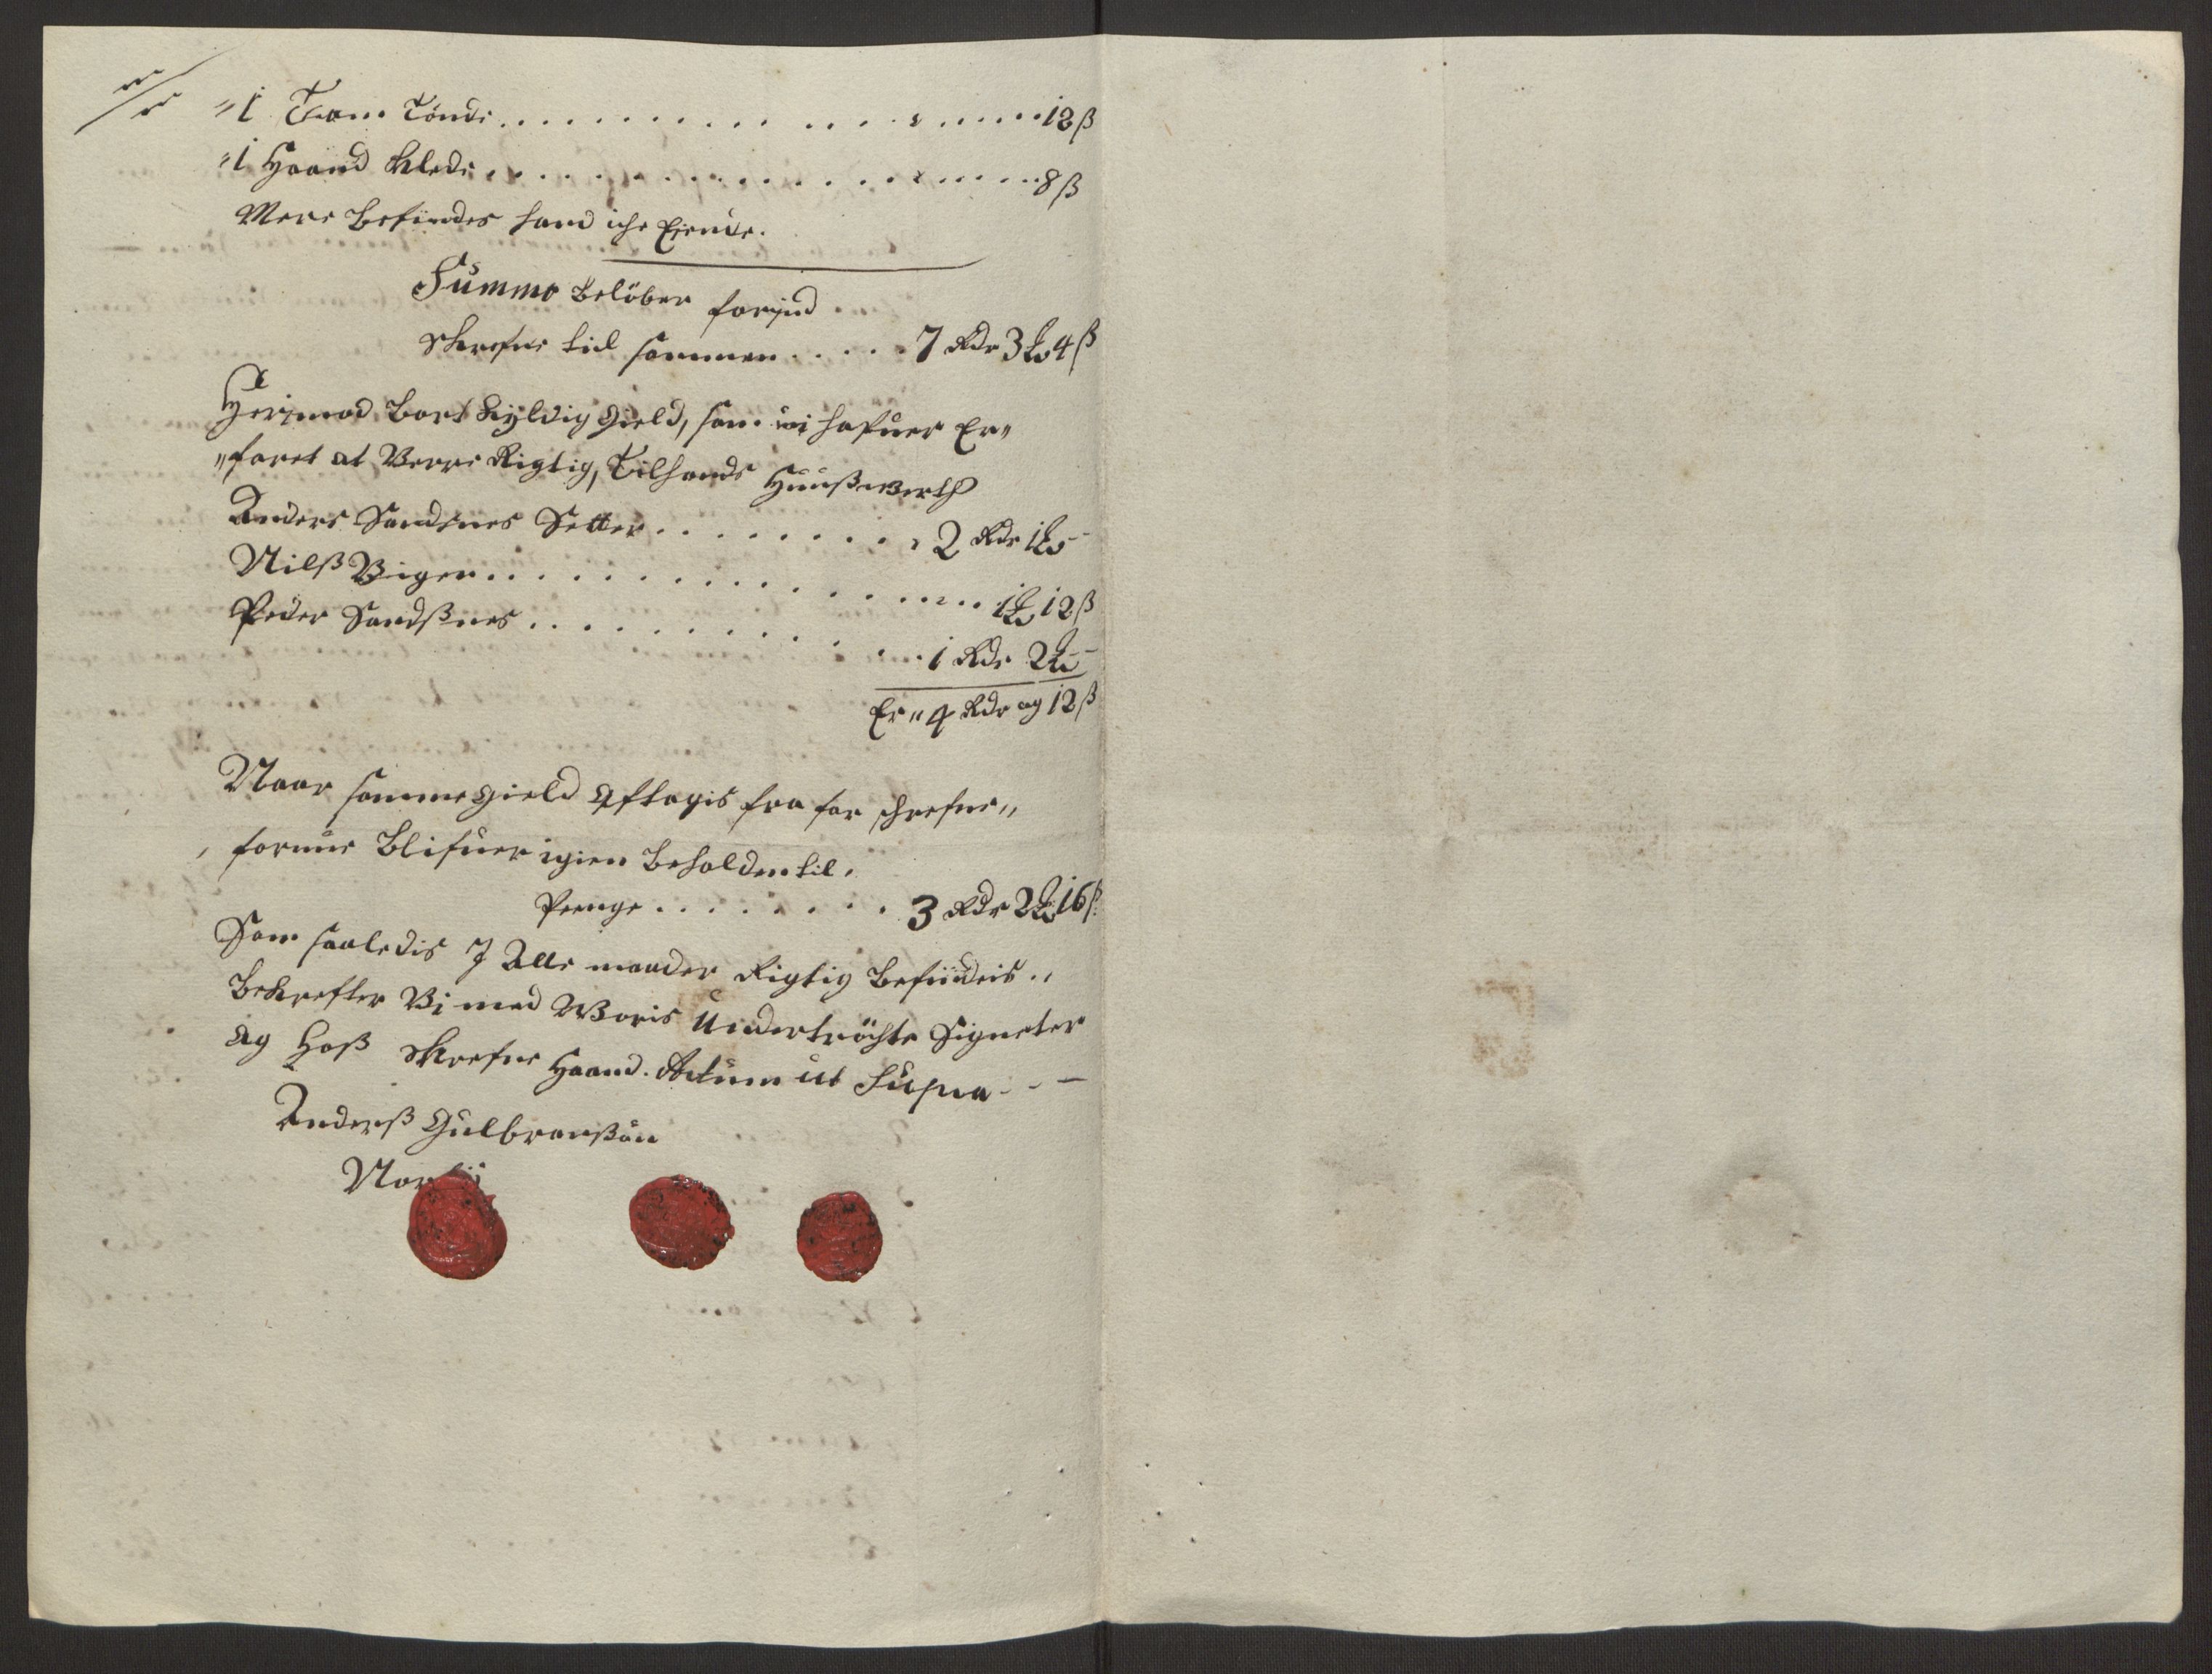 "1 Tom Tönde . . . . . . . . . . . 12 ß
"1 Haand Klede . . . . . . . . . . . 8 ß
Mere befindes hand iche Eiende.
Summa belöber forind
skrefne til sammen . . . . . 7 Rdr 3 ℔ 4 ß
Herimod Bort skyldig gield, som wi hafuer Er"
"faret at Verre Rigtig, Til hands Huußwerth
Anders Sandsnes Setter . . . . . . . . . 2 Rdr 1 ℔ -
Nilß Vigen . . . . . . . . . . . 1 ℔ 12 ß
Peder Sandßnes . . . . . . . . . . . 1 Rdr 2 ℔ -
Er " 4 Rdr og 12 ß
Naar samme gield Aftagis fra for schrefne "
formue Blifuer igien beholden til
Penge . . . . . . . . 3 Rdr 2 ℔ 16 ß
Som saaledis J Alle maader Rigtig befindeis ..
Bekrefter Vi med Woris Undertröchte Signeter
og hoß skrefne Haand. Actum ut Supra - - -
Anderß Gulbranßön